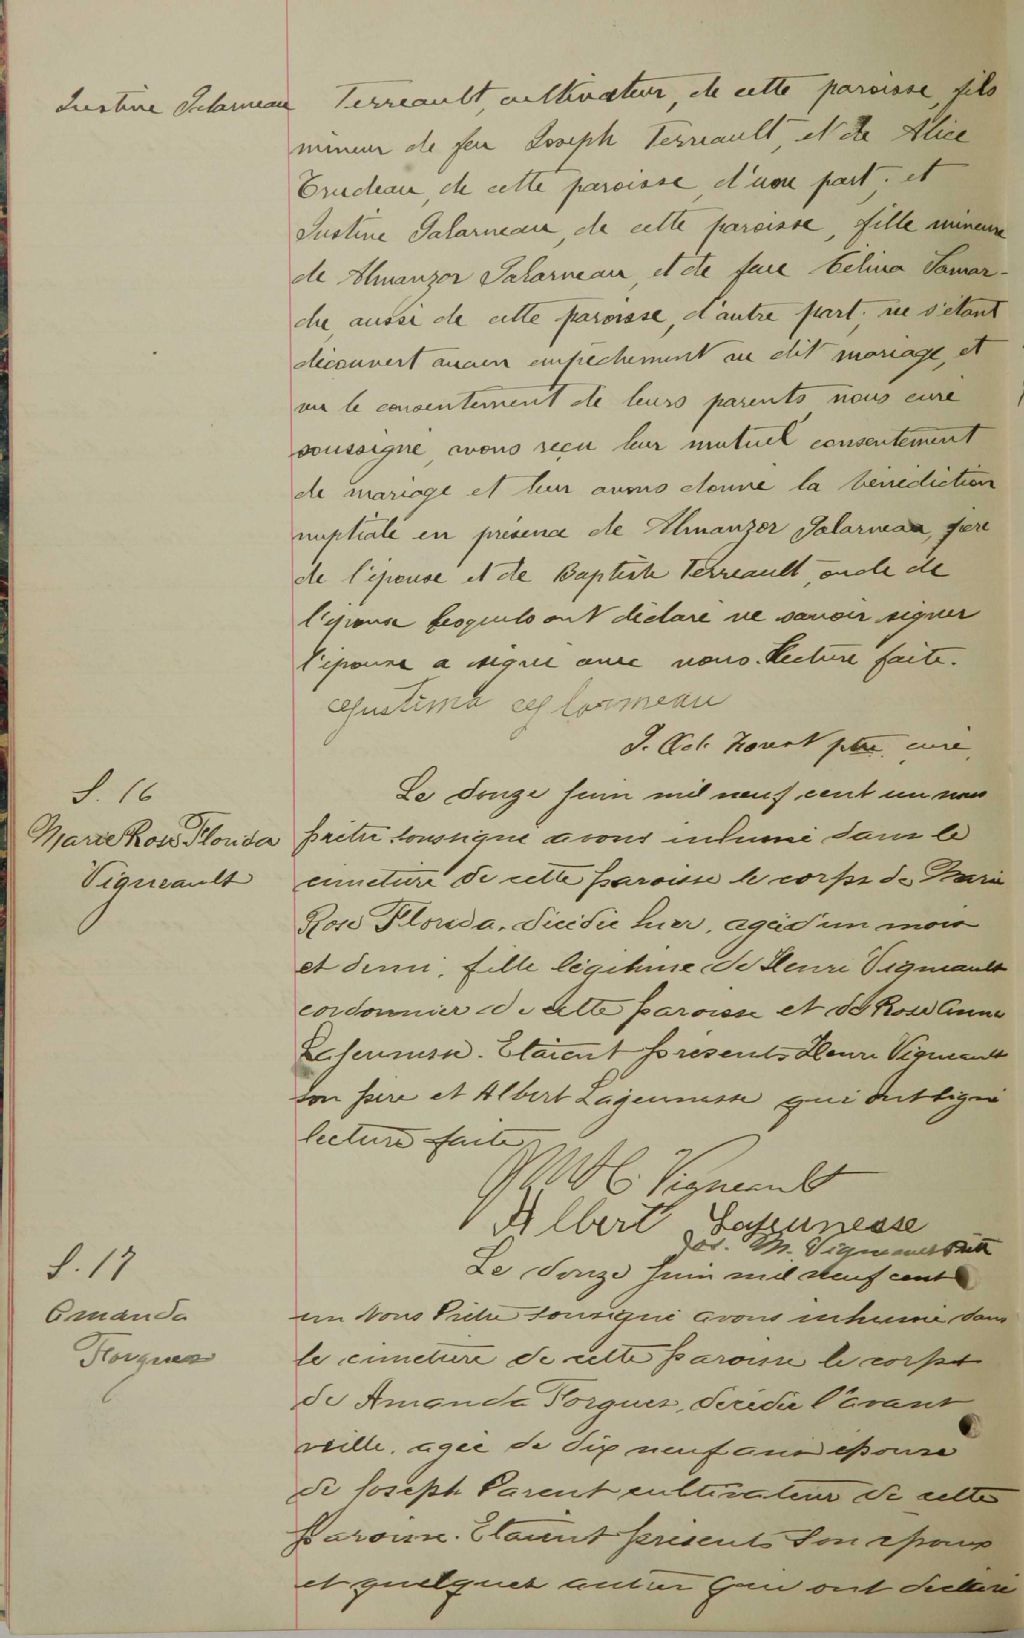 Justine Galarneau
Terreault, cultivateur, de cette paroisse, fils
mineur de feu Joseph Terreault, et de Alice
Trudeau, de cette paroisse, d'une part; et
Justine Galarneau, de cette paroisse, fille mineure
de Almanzor Galarneau, et de feue Célina Lamar-
che, aussi de cette paroisse, d'autre part; ne s'étant
découvert aucun empêchement au dit mariage, et
vu le consentement de leurs parents, nous curé
soussigné, avons reçu leur mutuel consentement
de mariage et leur avons donné la bénédiction
nuptiale en présence de Almanzor Galarneau, père
de l'épouse et de Baptiste Terreault, oncle de
l'époux lesquels ont déclaré ne savoir signer
l'épouse a signé avec nous. Lecture faite.
Justina Glarneau
ptre curé,
S. 16
Marie Rose Florida
Vigneault
Le douze juin mil neuf cent un nous
prêtre soussigné avons inhumé dans le
cimetière de cette paroisse le corps de Marie
Rose Florida, décédée hier, agée d'un mois
et demi, fille légitime de Henri Vigneault
cordonnier de cette paroisse et de Rose Anna
Lajeunesse. Etaient présents Henri Vigneault
son père et Albert Lajeunesse qui ont signé
lecture faite
H. Vigneault
Albert Lajeunesse
Jos. M. Vigneault Ptre
S. 17
Amanda
Forgues
Le douze juin mil neuf cent
un Nous Prêtre soussigné avons inhumé dans
le cimetière de cette paroisse le corps
de Amanda Forgues, décédée l'avant
veille, agée de dix neuf ans épouse
de Joseph Parent cultivateur de cette
paroisse. Etaient présents son époux
et quelques autres qui ont déclaré